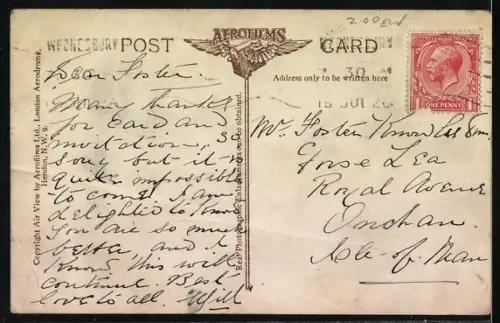 2.00
WEDNESBURY
POST AEROFILMS CARD
Address only to be written here
7 30
15 JUL 26
ONE PENNY
Copyright Air View by Aerofilms Ltd., London Aerodrome,
Hendon, N.W. 9.
Real Photographic Enlargements can be obtained.
Dear Foster
Many thanks
for card and
invitation, so
sorry but it is
quite impossible
to come. I am
delighted to know
you are so much
better, and I
know this will
continue. Best
love to all. Will
Mr Foster Knowles
Gorse Lea
Royal Avenue
Onchan
Isle-of-Man